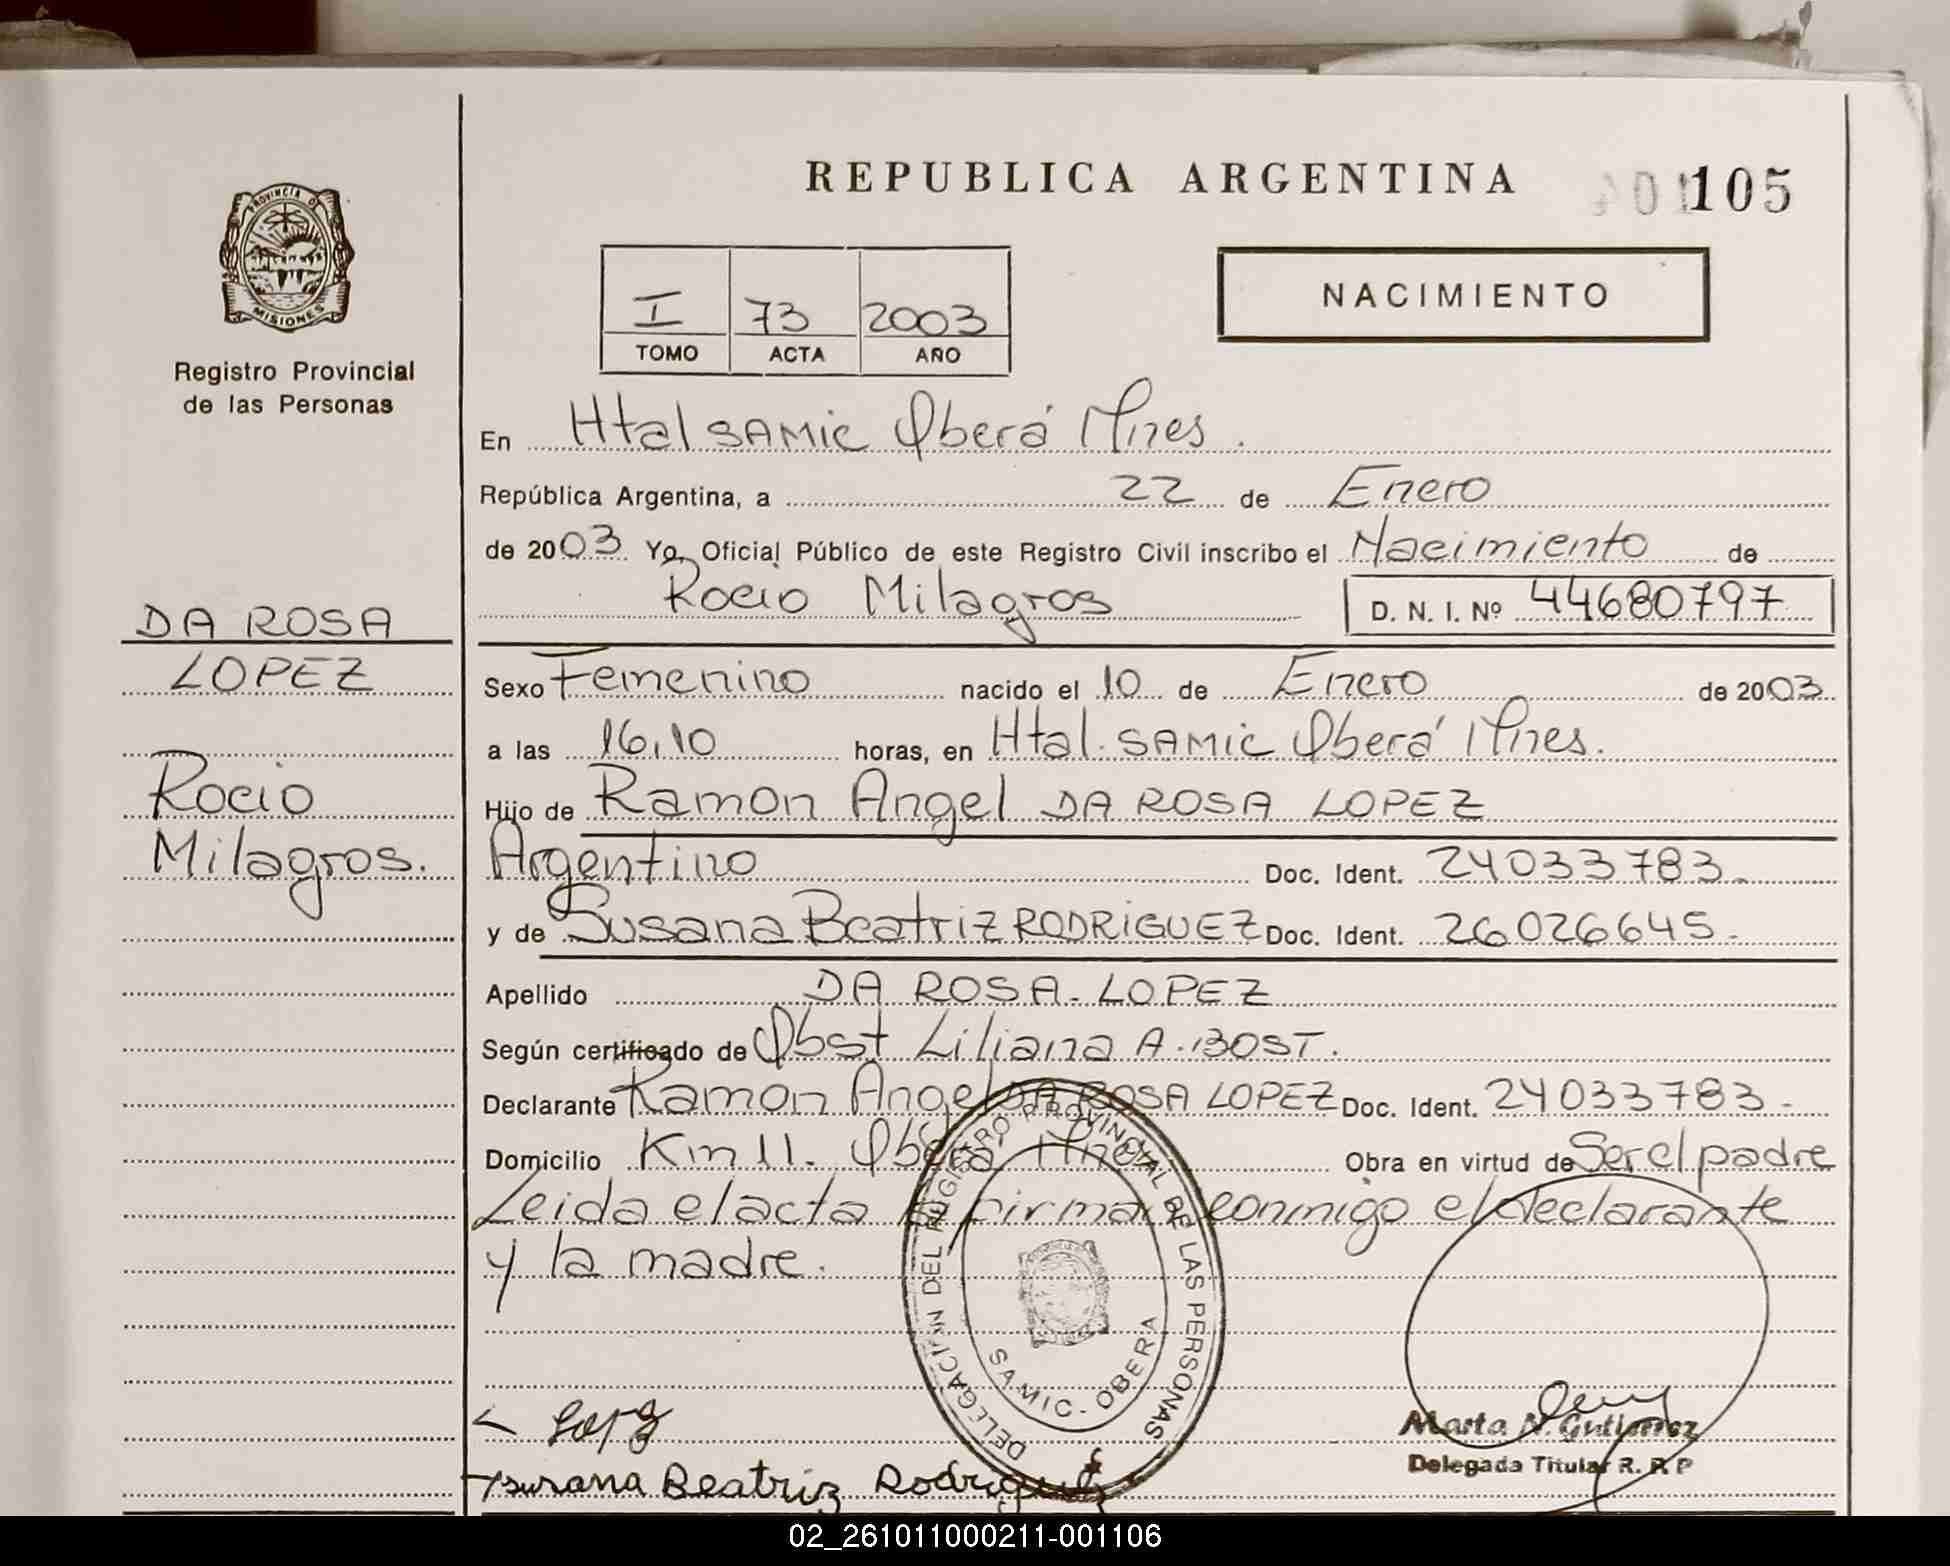 REPUBLICA ARGENTINA
105
PROVINCIA DE
MISIONES
Registro Provincial
de las Personas
I 73 2003
TOMO ACTA AÑO
NACIMIENTO
En Htal SAMIC Oberá Mnes.
República Argentina, a 22 de Enero
de 2003 Yo, Oficial Público de este Registro Civil inscribo el Nacimiento de
Rocio Milagros D. N. I. Nº 44680797
DA ROSA
LOPEZ
Rocio
Milagros.
Sexo Femenino nacido el 10 de Enero de 2003
a las 16,10 horas, en Htal. SAMIC Oberá Mnes.
Hijo de Ramon Angel DA ROSA LOPEZ
Argentino Doc. Ident. 24033783.
y de Susana Beatriz RODRIGUEZ Doc. Ident. 26026645.
Apellido DA ROSA LOPEZ
Según certificado de Obst Liliana A. BOST.
Declarante Ramon Angel DA ROSA LOPEZ Doc. Ident. 24033783.
Domicilio Km 11. Oberá Mnes. Obra en virtud de Ser el padre
Leida el acta la firman conmigo el declarante
y la madre.
DELEGACIÓN DEL REGISTRO PROVINCIAL DE LAS PERSONAS
SAMIC - OBERA
Marta N. Gutierrez
Delegada Titular R. P. P
Susana Beatriz Rodriguez
02_261011000211-001106